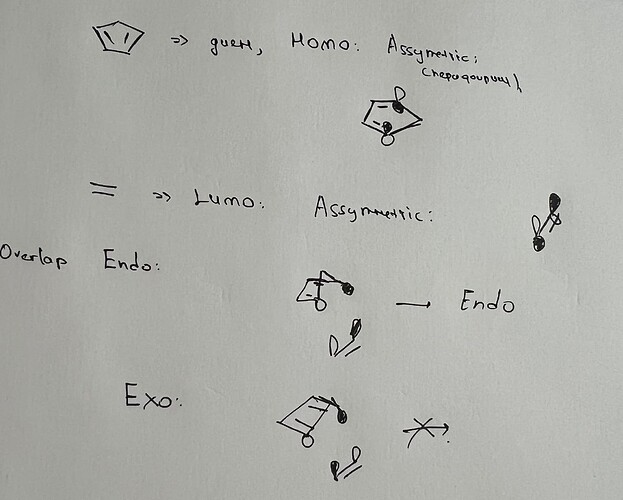 => диен, Homo: Assymetric:
=> Lumo: Assymmetric:
Overlap Endo:
→ Endo
Exo: